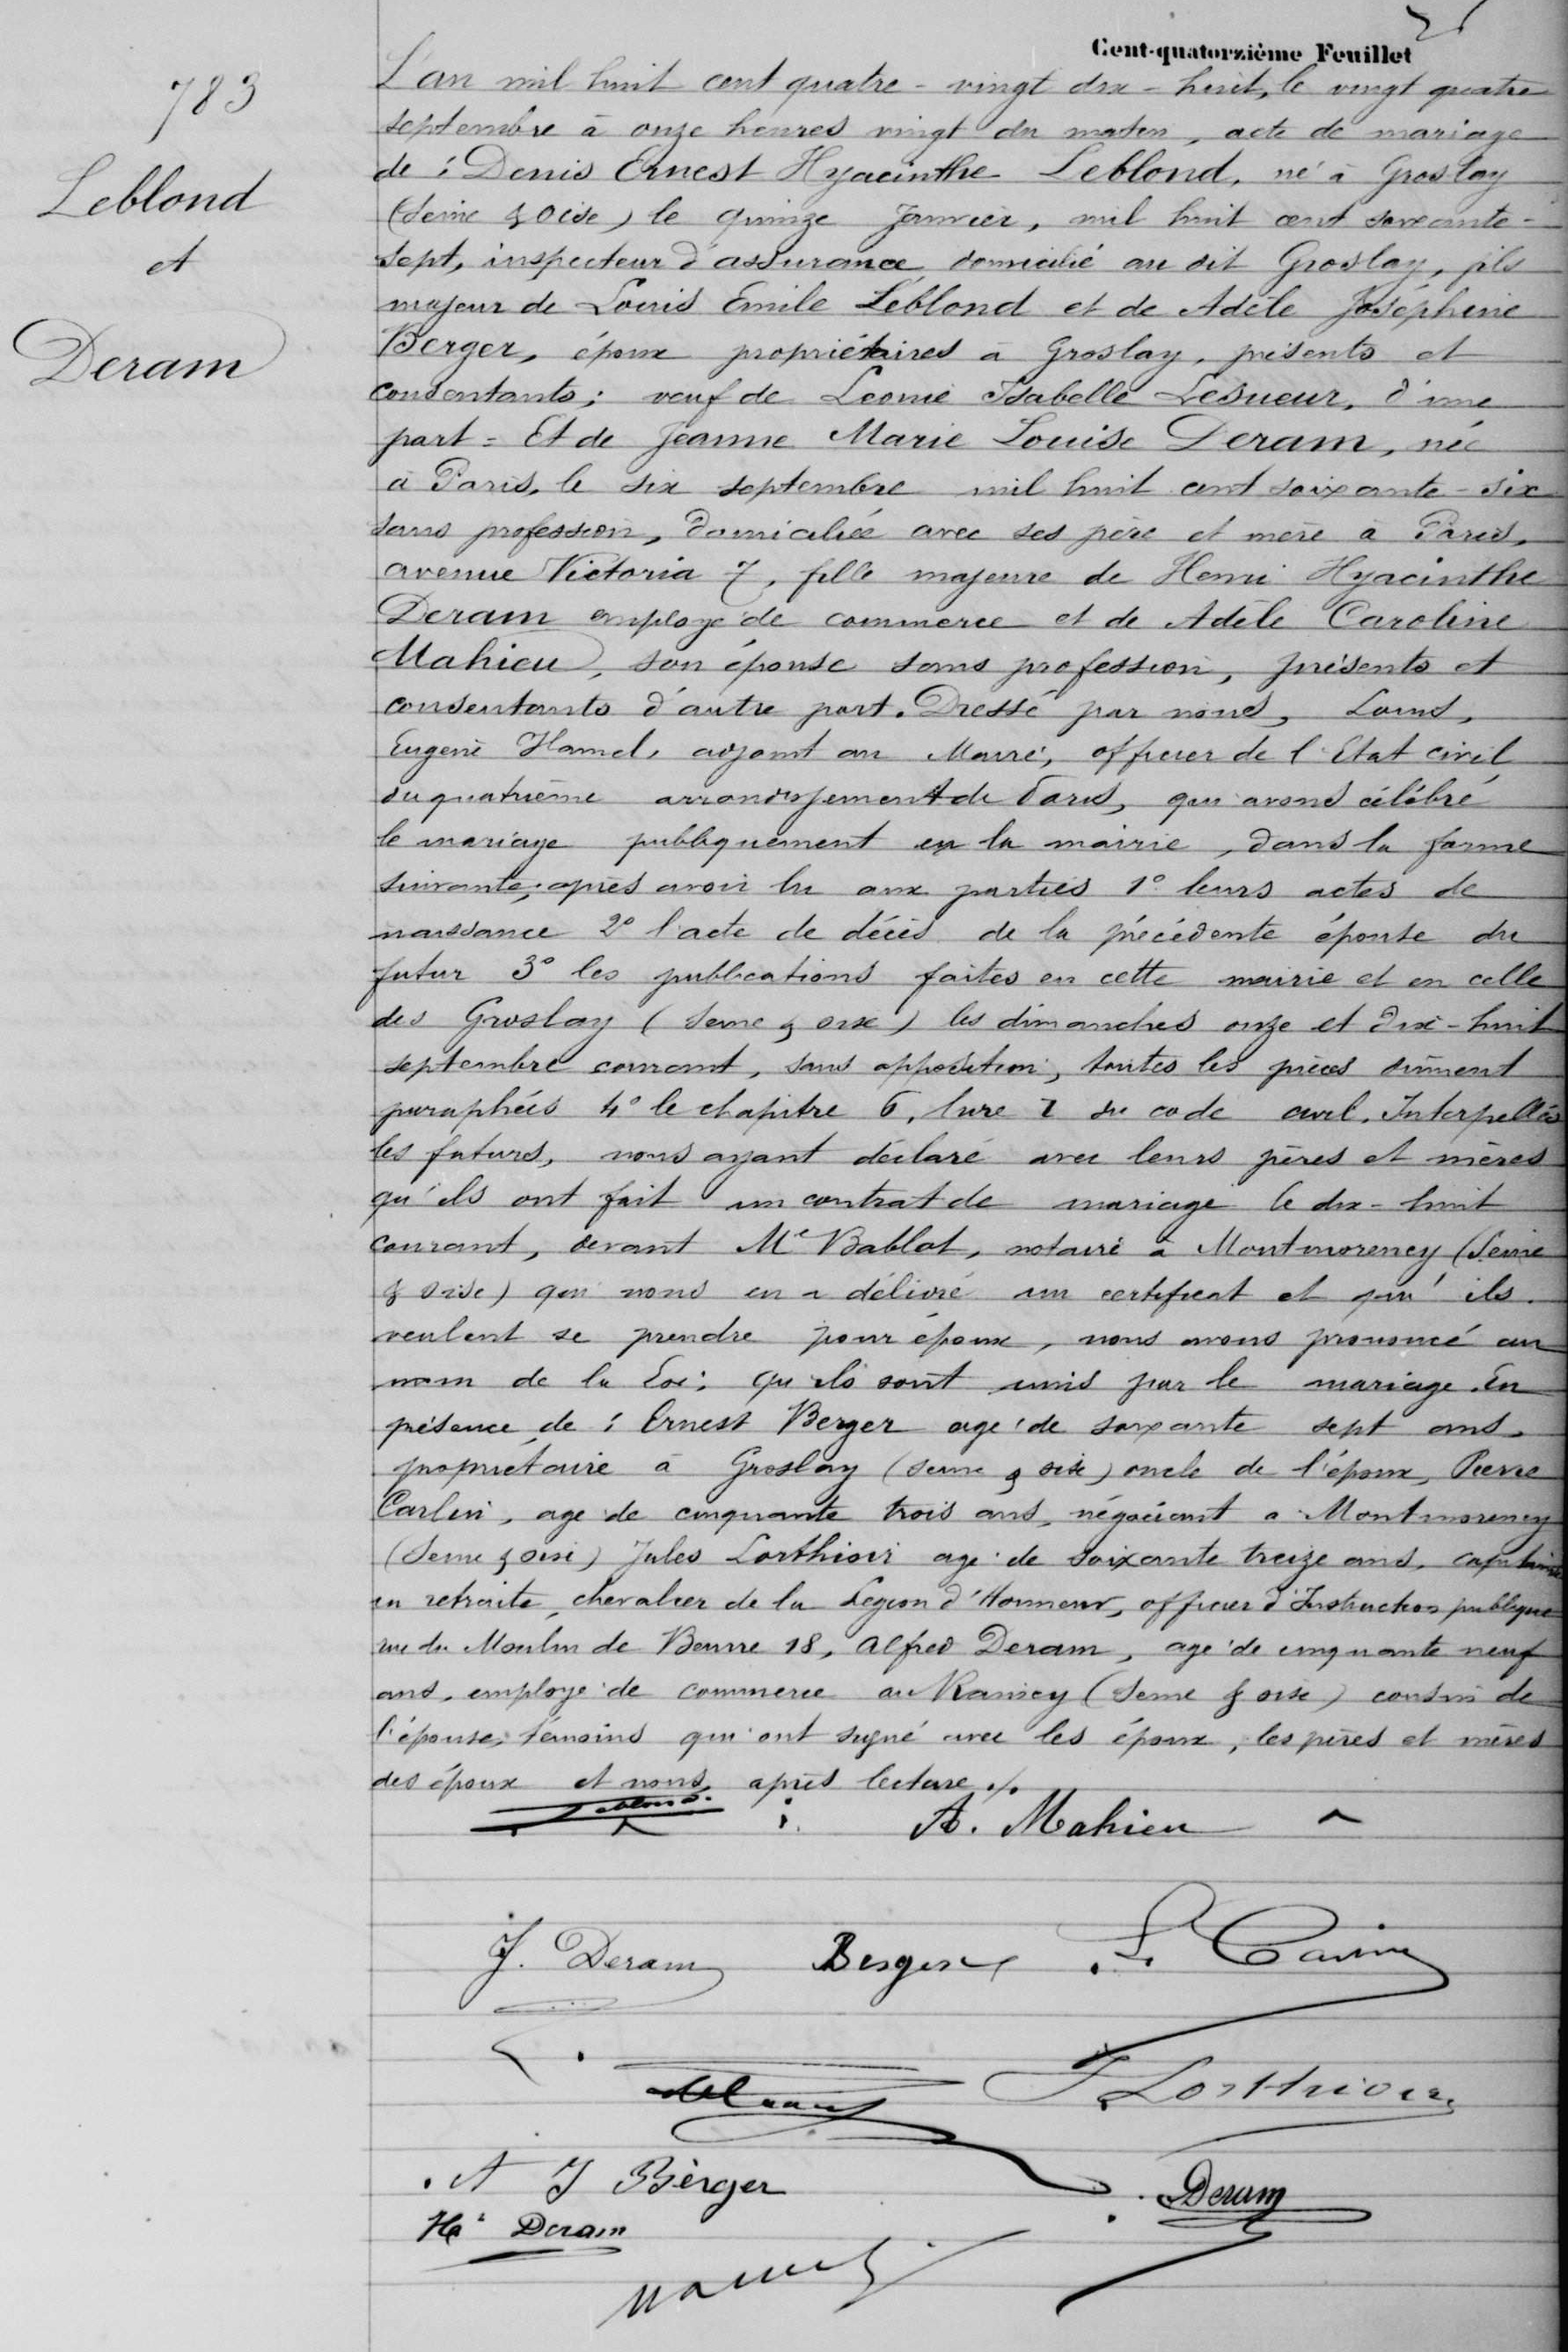 Cent-quatorzième Feuillet
783
Leblond
et
Deram
L'an mil huit cent quatre-vingt dix-huit, le vingt quatre
septembre à onze heures vingt du matin, acte de mariage
de : Denis Ernest Hyacinthe Leblond, né à Groslay
(Seine & Oise) le quinze Janvier, mil huit cent soixante-
sept, inspecteur d'assurance domicilié au dit Groslay, fils
majeur de Louis Emile Leblond et de Adèle Joséphine
Berger, époux propriétaires à Groslay, présents et
consentants; veuf de Leonie Isabelle Lesueur, d'une
part = Et de Jeanne Marie Louise Deram, née
à Paris, le six septembre mil huit cent soixante-six
sans profession, domiciliée avec ses père et mère à Paris,
avenue Victoria 7, fille majeure de Henri Hyacinthe
Deram employé de commerce et de Adèle Caroline
Mahieu, son épouse sans profession, présents et
consentants d'autre part. Dressé par nous, Louis,
Eugène Hamel, adjoint au Maire, officier de l'Etat civil
du quatrième arrondissement de Paris, qui avons célébré
le mariage publiquement en la mairie, dans la forme
suivante; après avoir lu aux parties 1° leurs actes de
naissance 2° l'acte de décès de la précédente épouse du
futur 3° les publications faites en cette mairie et en celle
des Groslay (Seine & oise) les dimanches onze et dix-huit
septembre courant, sans opposition, toutes les pièces dûment
paraphées 4° le chapitre 6, livre 1 du code civil. Interpellés
les futurs, nous ayant déclaré avec leurs pères et mères
qu'ils ont fait un contrat de mariage le dix-huit
courant, devant Me Bablot, notaire à Montmorency (Seine
& oise) qui nous en a délivré un certificat et qu'ils
veulent se prendre pour époux, nous avons prononcé au
nom de la Loi; qu'ils sont unis par le mariage. En
présence de : Ernest Berger agé de soixante sept ans,
propriétaire à Groslay (Seine & oise) oncle de l'époux, Pierre
Carlin, agé de cinquante trois ans, négociant à Montmorency
(Seine & oise) Jules Lorthioir agé de soixante treize ans, capitaine
en retraite, chevalier de la Légion d'Honneur, officier d'Instruction publique
rue du Moulin de Beurre 18, Alfred Deram, agé de cinquante neuf
ans, employé de commerce au Raincy (Seine & oise) cousin de
l'épouse, témoins qui ont signé avec les époux, les pères et mères
des époux et nous, après lecture ./.
Leblond
A. Mahieu
J. Deram Berger
J Lorthioir
A J Berger
Deram
Hri Deram